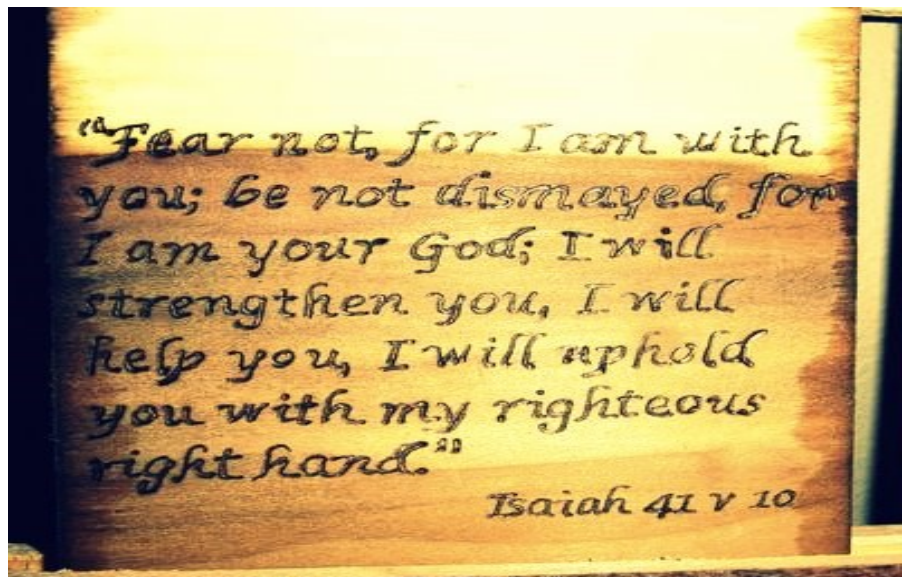 "Fear not, for I am with
you; be not dismayed, for
I am your God; I will
strengthen you, I will
help you, I will uphold
you with my righteous
right hand."
Isaiah 41 v 10